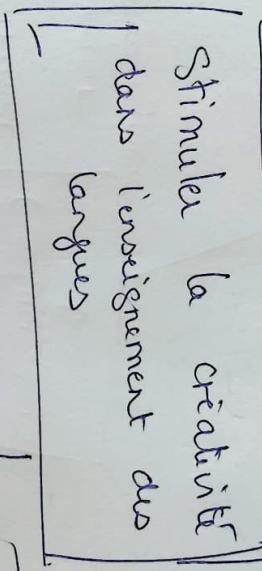 Stimuler la créativité
dans l'enseignement des
langues